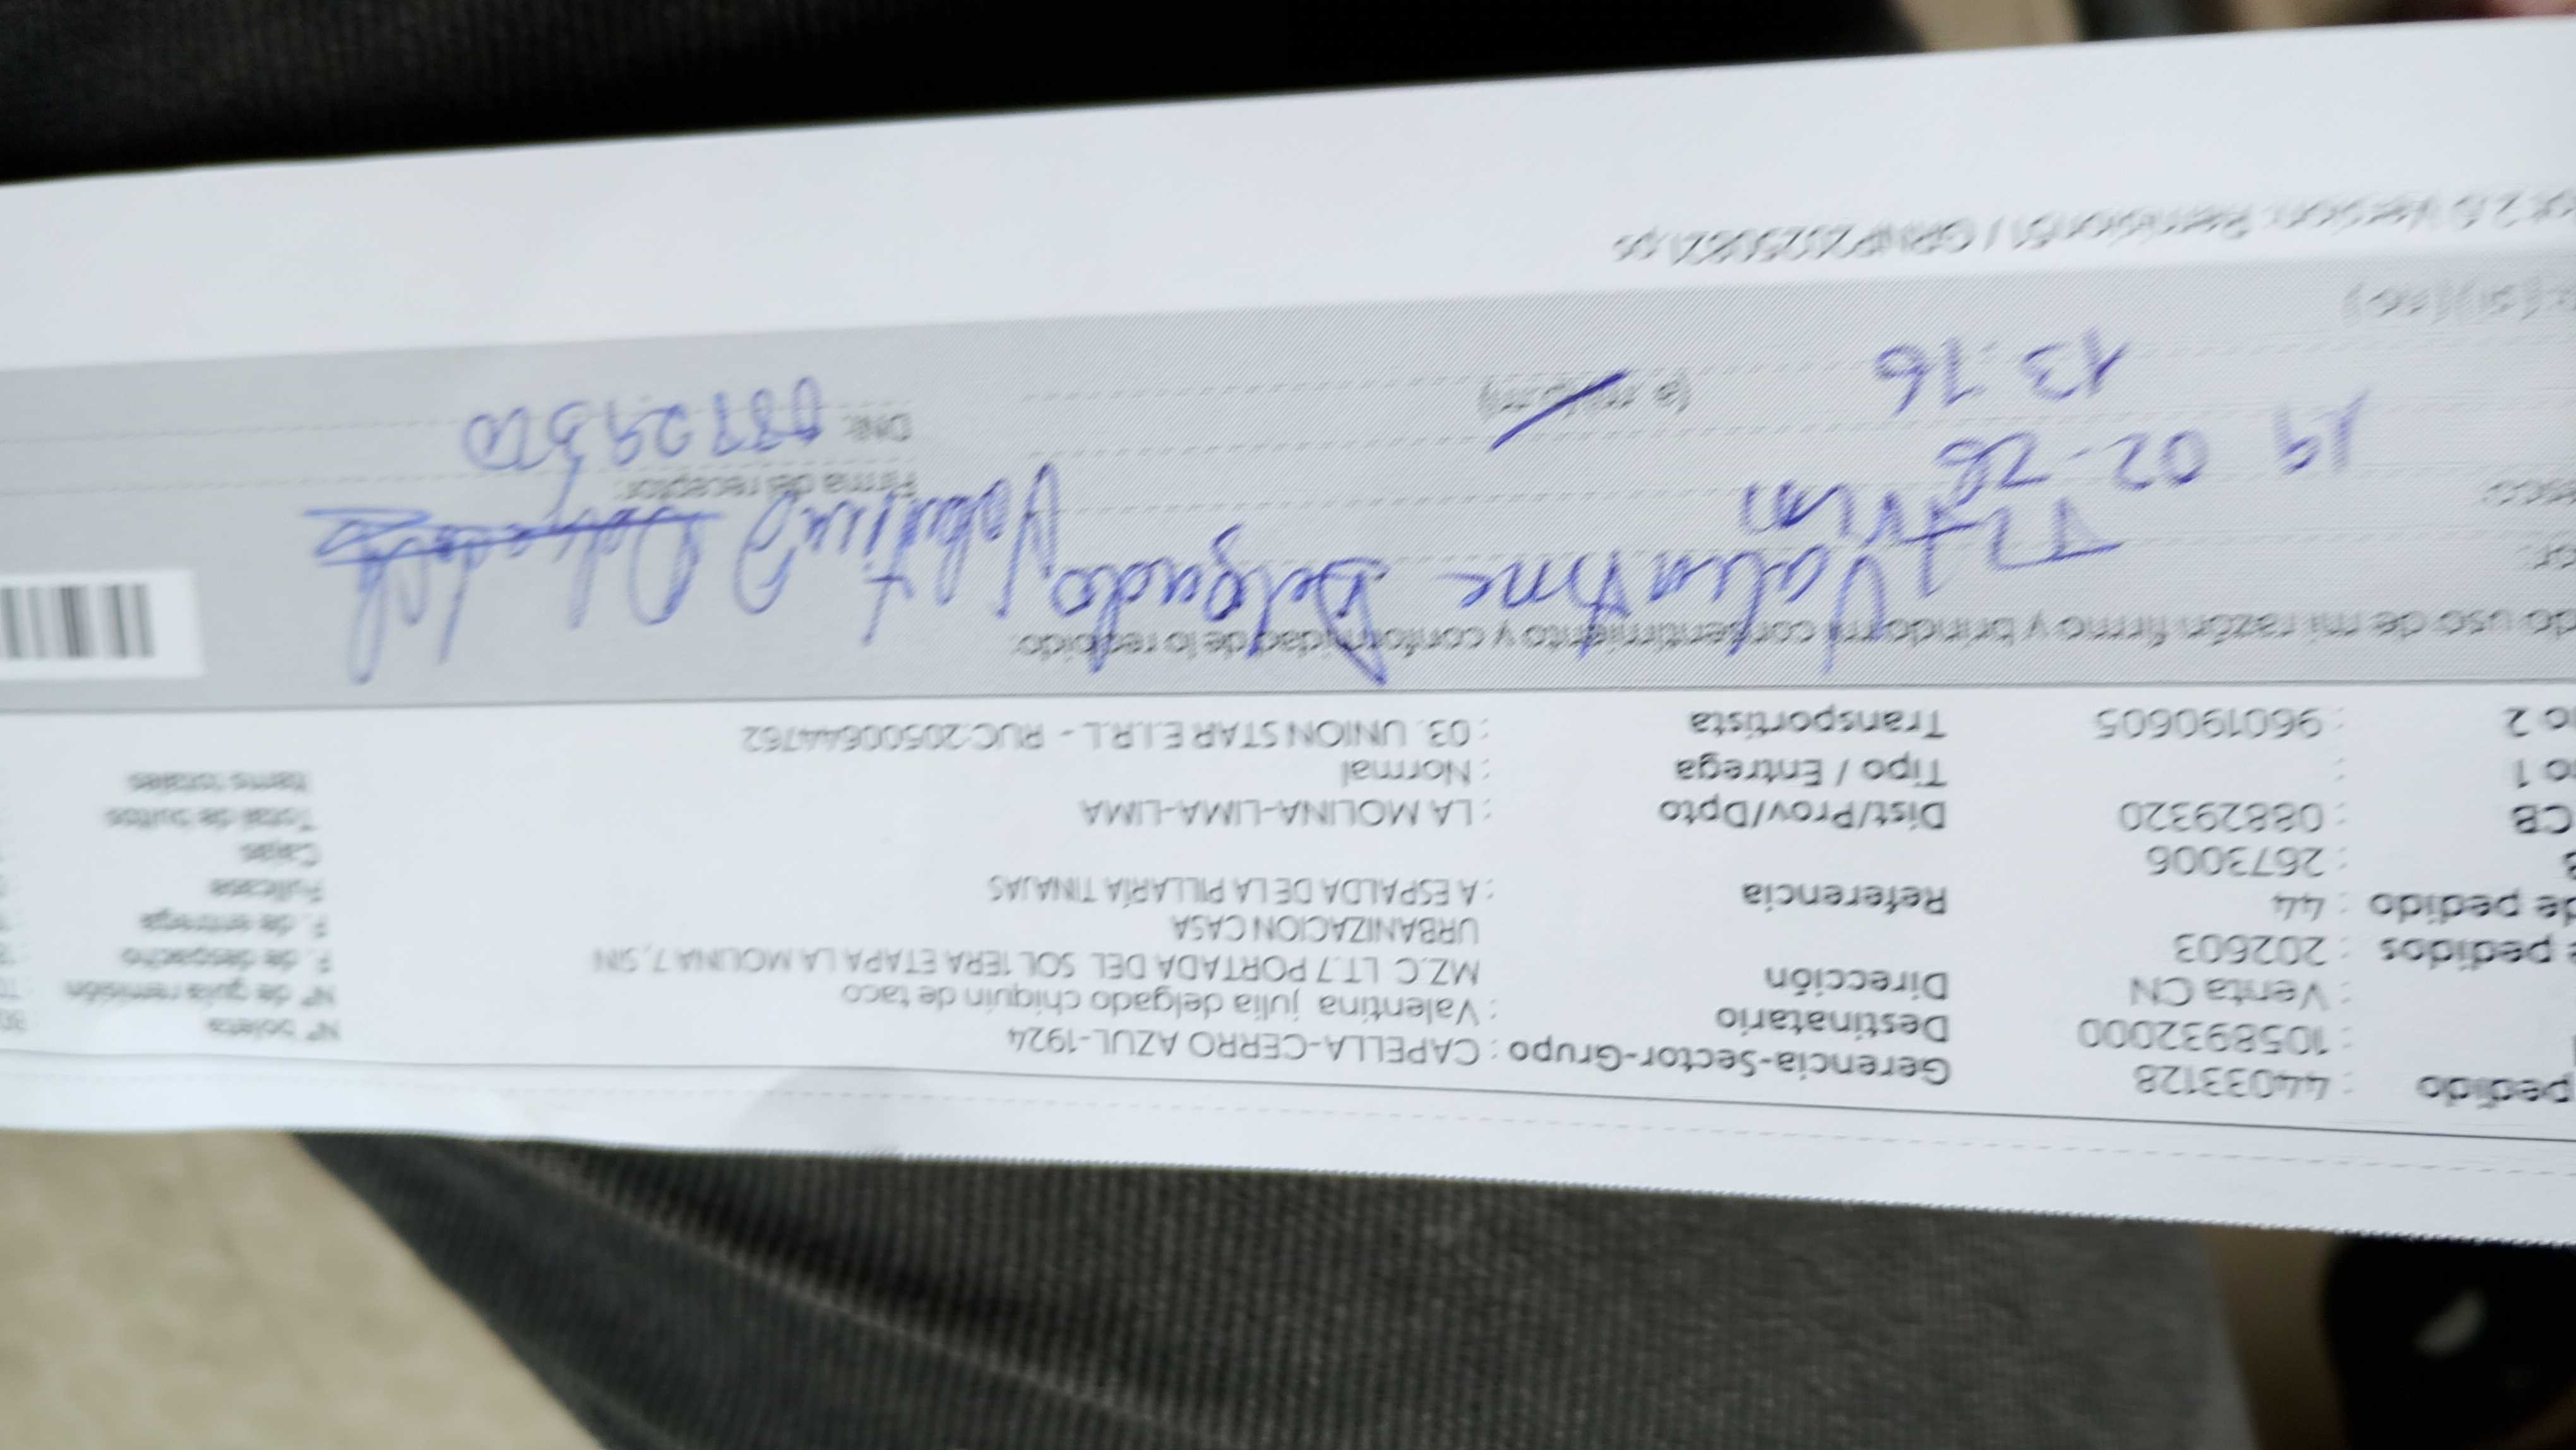 pedido : 44033128 Gerencia-Sector-Grupo : CAPELLA-CERRO AZUL-1924 Nº boleta
: 1058932000 Destinatario : Valentina julia delgado chiquin de taco Nº de guía remisión
: Venta CN Dirección MZ.C LT.7 PORTADA DEL SOL 1ERA ETAPA LA MOLINA 7, SN F. de despacho
pedidos : 202603 URBANIZACION CASA F. de entrega
de pedido : 44 Referencia : A ESPALDA DE LA PILLARÍA TINAJAS Fullcase
: 2673006 Cajas
CB : 08829320 Dist/Prov/Dpto : LA MOLINA-LIMA-LIMA Total de bultos
o 1 : Tipo / Entrega : Normal Items totales
o 2 : 960190605 Transportista : 03. UNION STAR E.I.R.L - RUC:20500644762
do uso de mi razón firmo y brindo mi consentimiento y conformidad de lo recibido:
Delgado
Titular
Firma del receptor:
19 02-26
DNI:
13:16 (a.m/p.m)